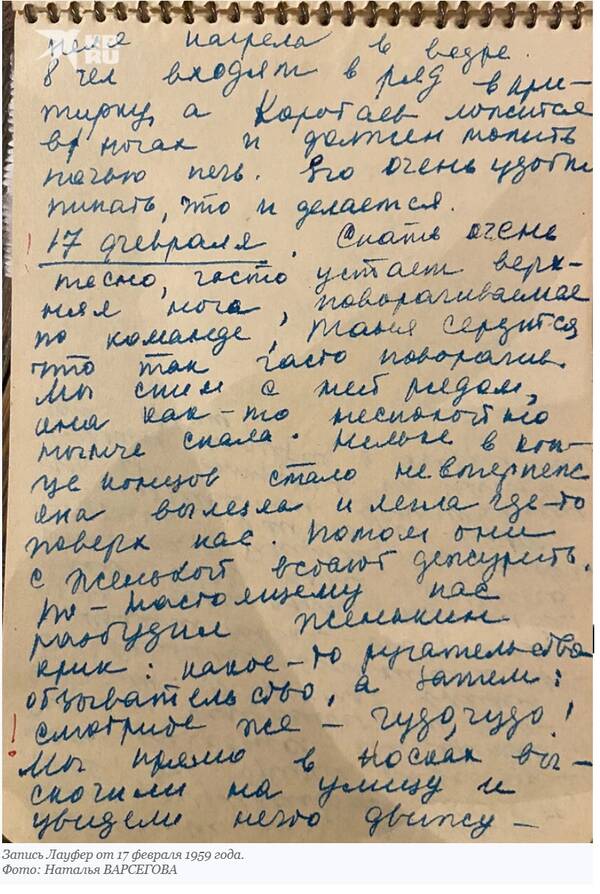 KP.RU
нагрела в ведре.
8 чел входят в ряд в при-
тирку, а Коротаев ложится
в ногах и должен топить
ночью печь. Его очень удобно
пинать, что и делается.
17 февраля. Спать очень
тесно, часто устает верх-
няя нога, поворачиваемся
по команде, Таня сердится,
что так часто поворачив.
Мы спим с ней рядом,
она как-то неспокойно
нынче спала. в кон-
це концов стало невтерпеж
она вылезла и легла где-то
поверх нас. Потом они
с Женькой встают дежурить.
По-настоящему нас
разбудил Женькин
крик: какое-то ругательство
обзывательство, а затем:
смотрите же – чудо, чудо!
Мы прямо в носках вы-
скочили на улицу и
увидели нечто движу-
Запись Лауфер от 17 февраля 1959 года.
Фото: Наталья ВАРСЕГОВА